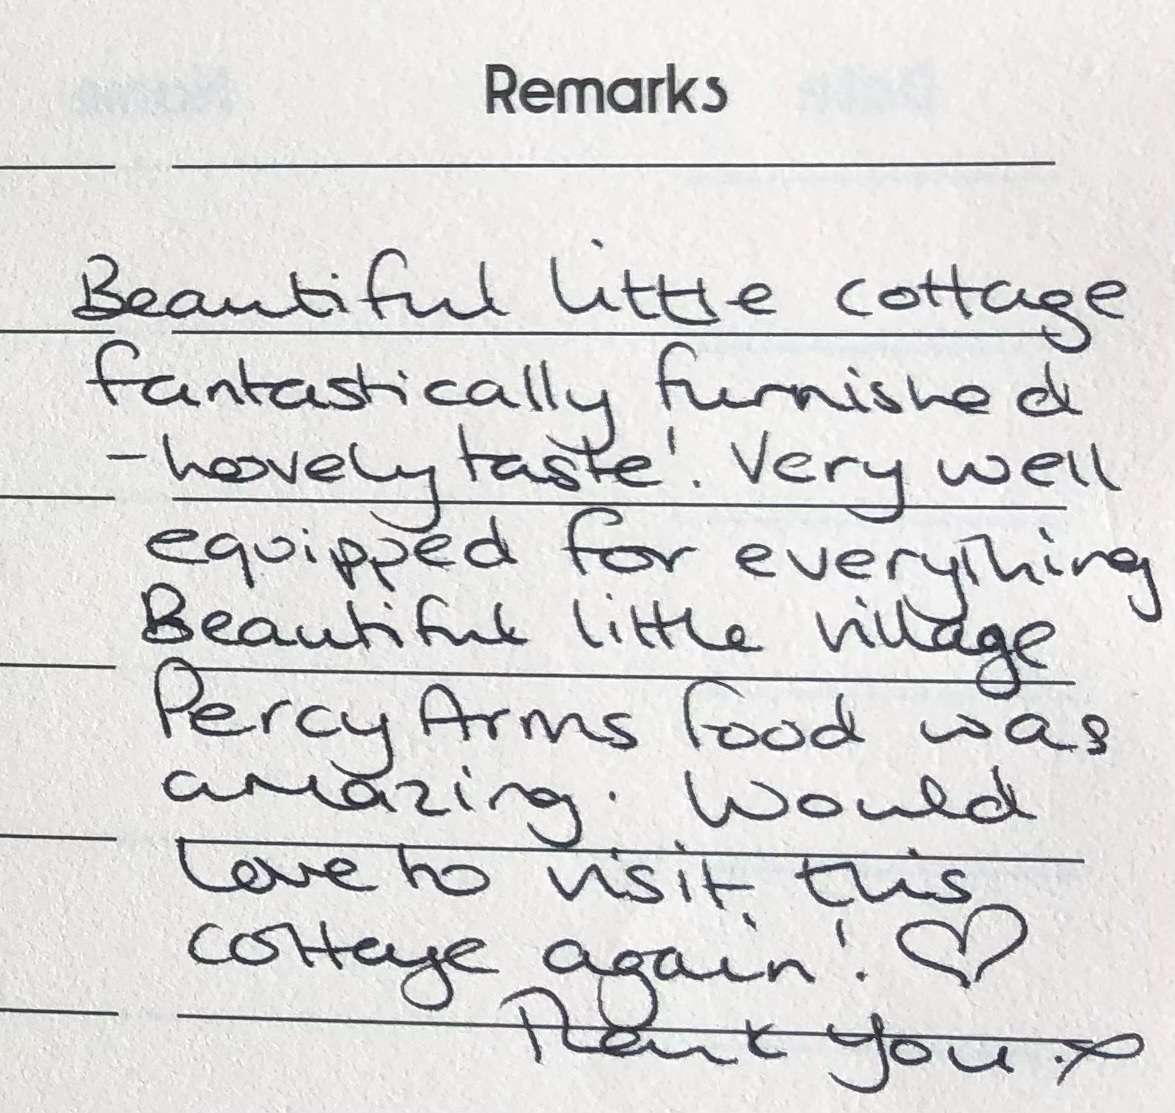 Remarks
Beautiful little cottage
fantastically furnished
- loovely taste! Very well
equipped for everything
Beautiful little village
Percy Arms food was
amazing. Would
love to visit this
cottage again! ♡
Thank you. x